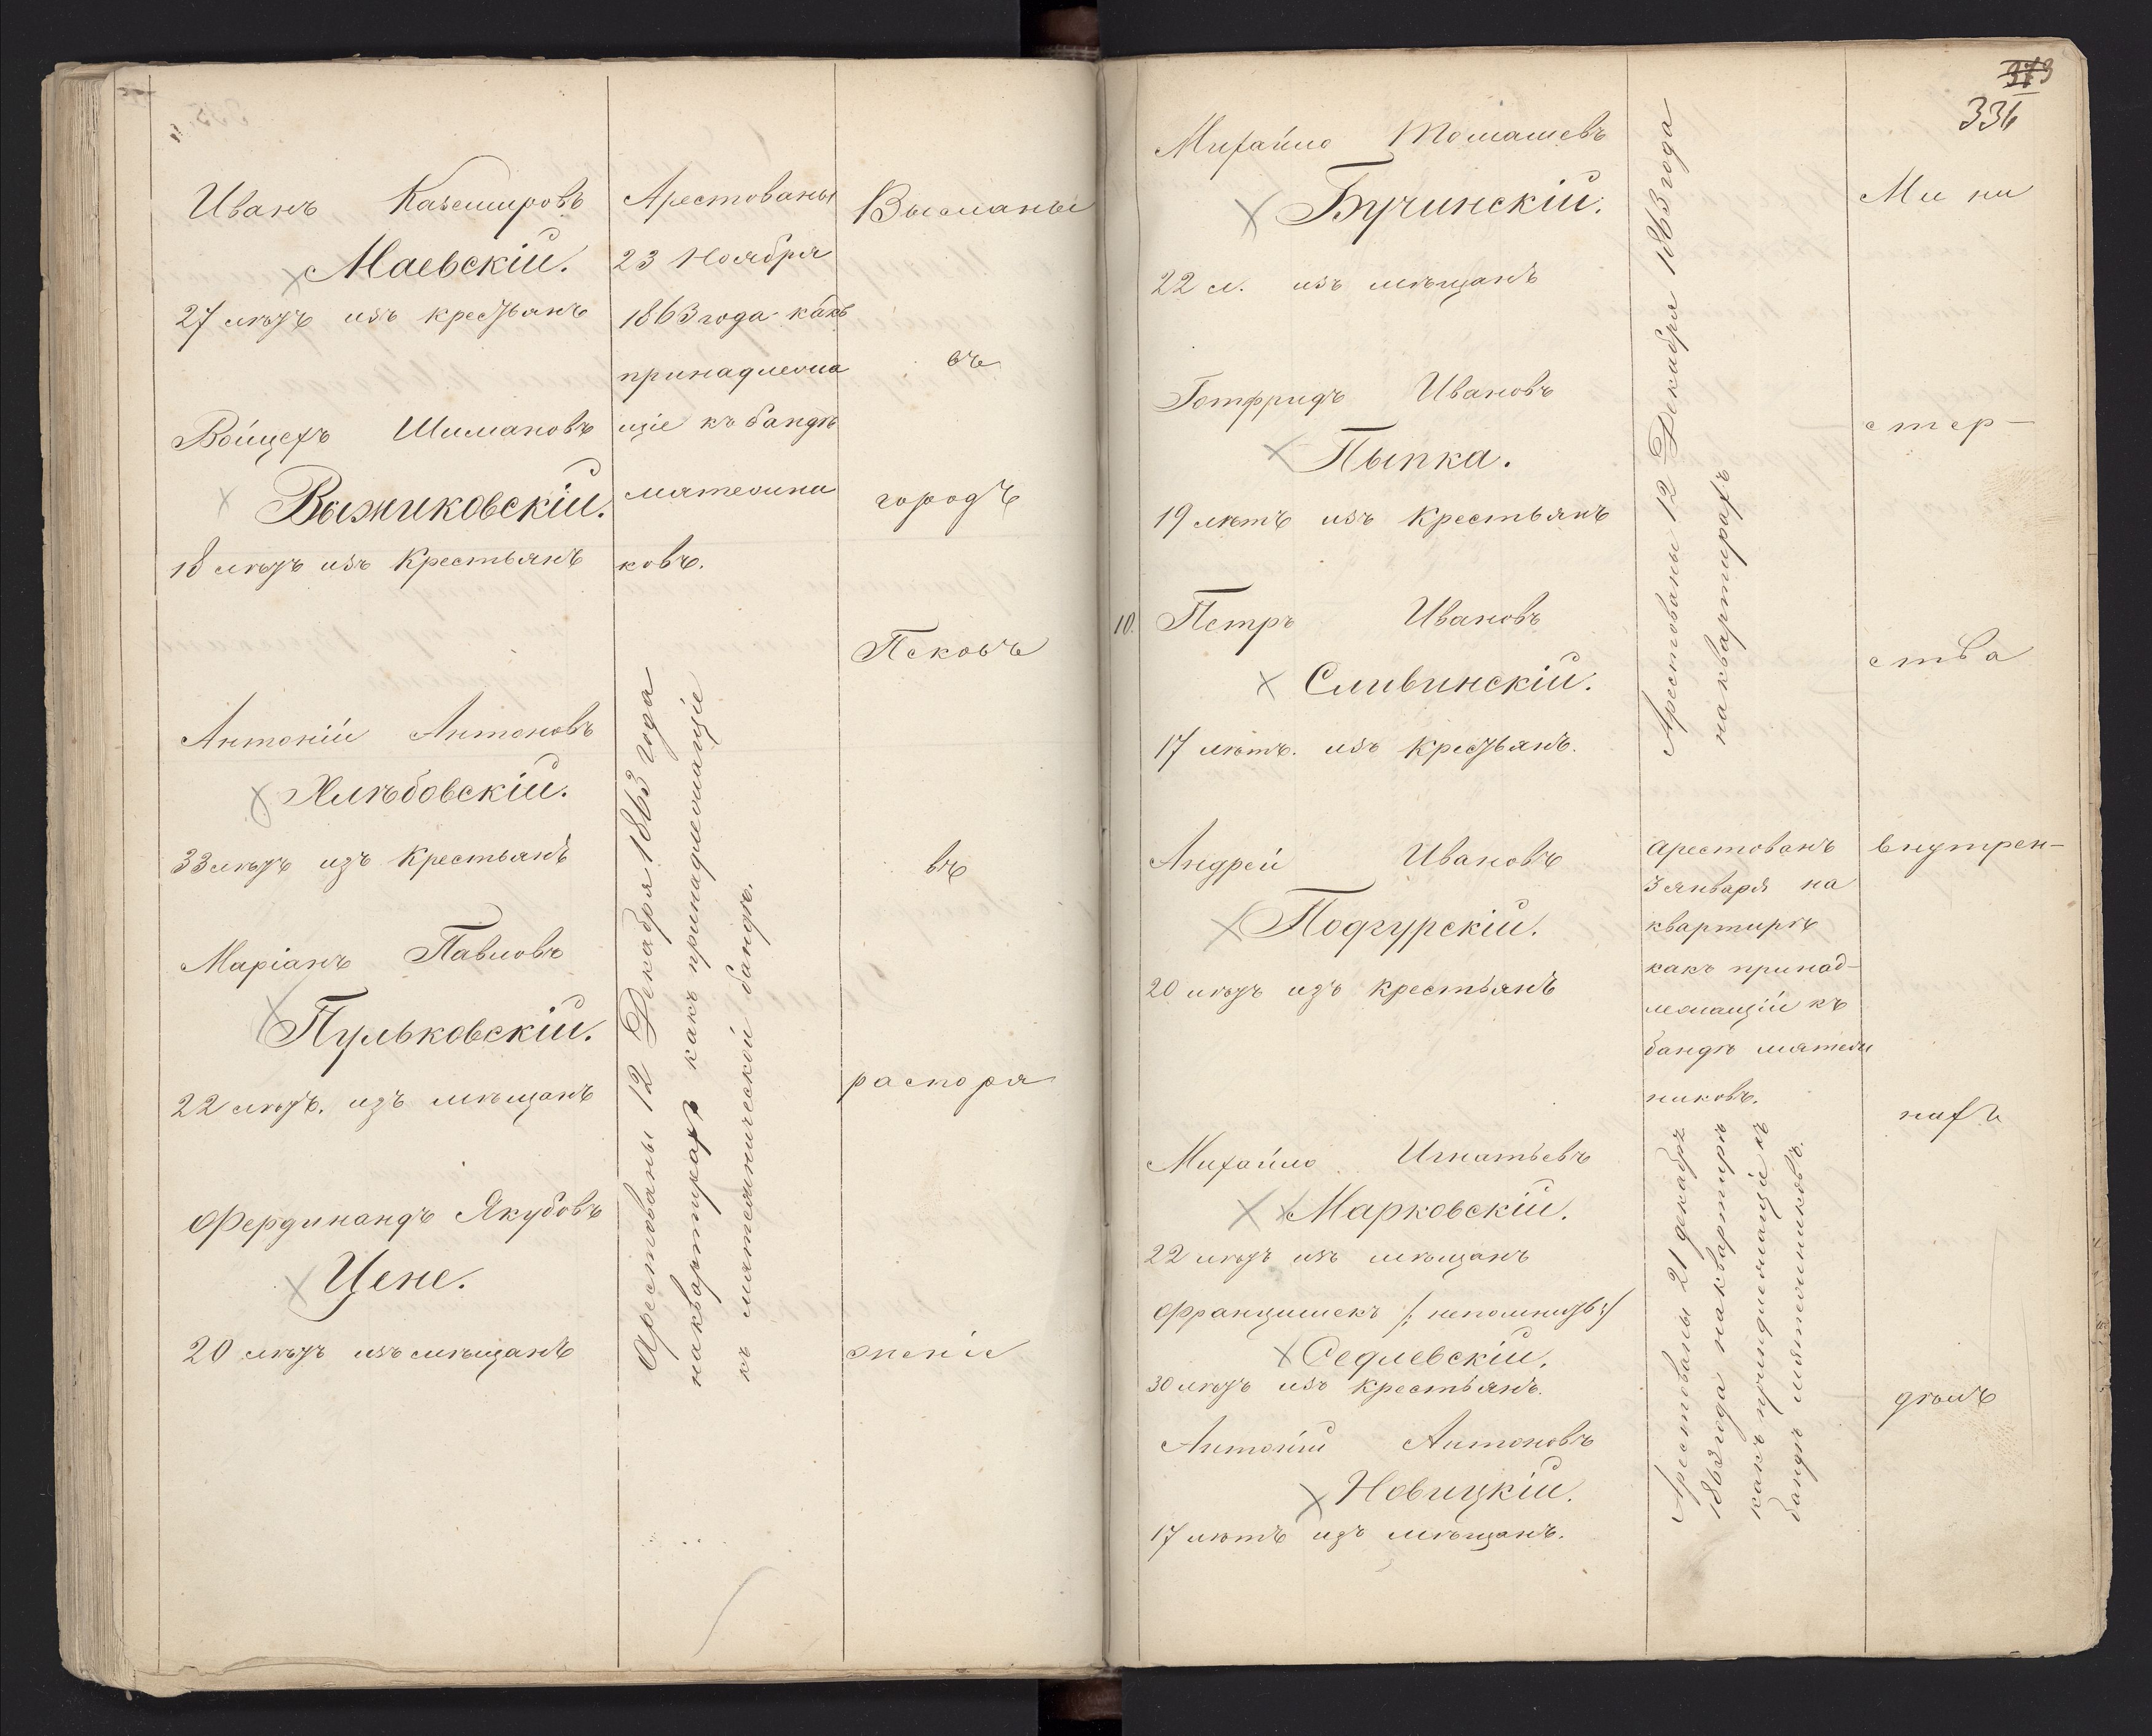 Иванъ Каземировъ
Маевскій.
27 лѣтъ изъ крестьянъ
Войцехъ Шимановъ
Выжиковскій.
18 лѣтъ изъ Крестьянъ
Антоній Антоновъ
Хлѣбовскій.
33 лѣтъ изъ Крестьянъ
Маріанъ Павловъ
Пульковскій.
22 лѣтъ. изъ мѣщанъ
Фердинандъ Якубовъ
Цене.
20 лѣтъ изъ мѣщанъ
Арестованы
23 Ноября
1863 года какъ
принадлежа
щіе къ бандѣ
мятежни
ковъ.
Арестованы 12 Декабря 1863 года
на квартирахъ какъ принадлежащіе
къ мятежнической бандѣ.
Высланы
въ
городъ
Псковъ
въ
распоря
женіе
373
336
Михайло Томашевъ
Бучинскій.
22 л. изъ мѣщанъ
Готфридъ Ивановъ
Пыпка.
19 лѣтъ изъ Крестьянъ
10. Петръ Ивановъ
Сливинскій.
17 лѣтъ. изъ Крестьянъ.
Андрей Ивановъ
Подгурскій.
20 лѣтъ изъ крестьянъ
Михайло Игнатьевъ
Марковскій.
22 лѣтъ изъ мѣщанъ
Францишекъ /: непомнитъ :/
Седлевскій.
30 лѣтъ изъ крестьянъ.
Антоній Антоновъ
Новицкій.
17 лѣтъ изъ мѣщанъ.
Арестованы 12 Декабря 1863 года
на квартирахъ
арестованъ
3 января на
квартирѣ
какъ принад-
лежащій къ
бандѣ мятеж
никовъ.
Арестованы 21 декабря
1863 года на квартирѣ
какъ принадлежащіе къ
бандѣ мятежниковъ.
Ми ни
стер-
ства
внутрен-
нихъ
дѣлъ